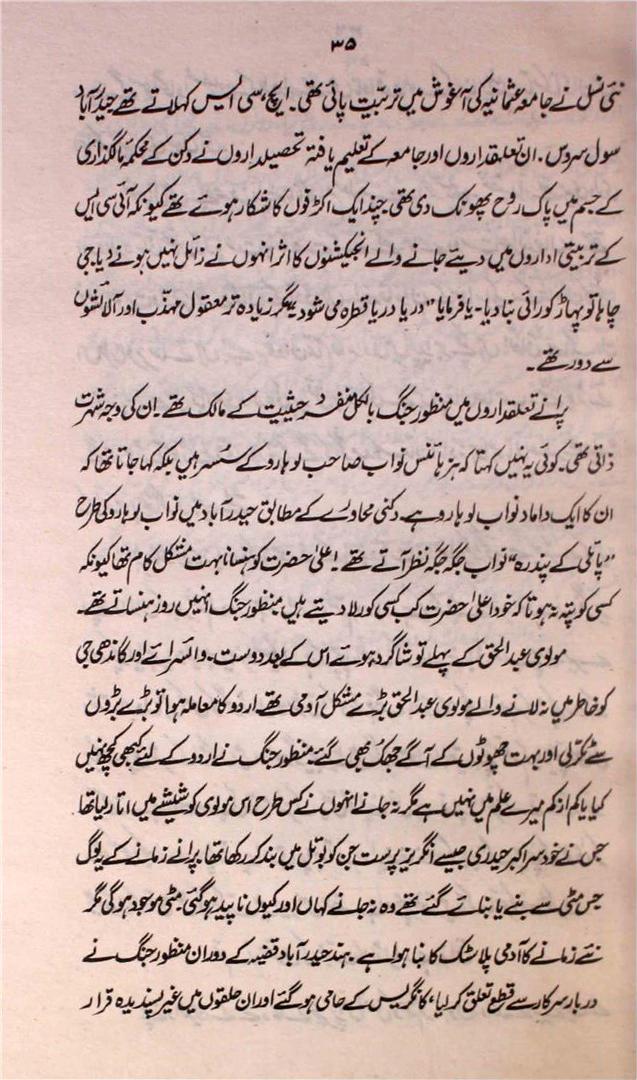 ۳۵
نئی نسل نے جامعہ عثمانیہ کی آغوش میں تربیت پائی تھی۔ ایچ، سی ایس کہلاتے تھے حیدرآباد
سول سروس۔ ان تعلقداروں اور جامعہ کے تعلیم یافتہ تحصیلداروں نے دکن کے محکمہ مالگذاری
کے جسم میں پاک روح پھونک دی تھی چند ایک اکڑفوں کا شکار ہوئے تھے کیونکہ آئی سی ایس
کے تربیتی اداروں میں دیئے جانے والے انجیکشنوں کا اثر انہوں نے زائل نہیں ہونے دیا جی
چاہا تو پہاڑ کو رائی بنا دیا۔ یا فرمایا "دریا دریا قطرہ می شود" مگر زیادہ تر معقول مہذب اور آلائشوں
سے دور تھے۔
پرانے تعلقداروں میں منظور جنگ بالکل منفرد حیثیت کے مالک تھے۔ ان کی وجہ شہرت
ذاتی تھی۔ کوئی یہ نہیں کہتا کہ ہز ہائنس نواب صاحب لوہارو کے سُسر ہیں بلکہ کہا جاتا تھا کہ
ان کا ایک داماد نواب لوہارو ہے۔ دکنی محاورے کے مطابق حیدرآباد میں نواب لوہارو کی طرح
"پائلی کے پندرہ" نواب جگہ جگہ نظر آتے تھے۔ اعلیٰ حضرت کو ہنسانا بہت مشکل کام تھا کیونکہ
کسی کو پتہ نہ ہوتا کہ خود اعلیٰ حضرت کب کسی کو رلا دیتے ہیں منظور جنگ انہیں روز ہنساتے تھے۔
مولوی عبدالحق کے پہلے تو شاگرد ہوئے اس کے بعد دوست۔ وائسرائے اور گاندھی جی
کو خاطر میں نہ لانے والے مولوی عبدالحق بڑے مشکل آدمی تھے۔ اردو کا معاملہ ہوا تو بڑے بڑوں
سے ٹکر لی اور بہت چھوٹوں کے آگے جھک بھی گئے۔ منظور جنگ نے اردو کے لئے کبھی کچھ نہیں
کیا یا کم از کم میرے علم میں نہیں ہے مگر نہ جانے انہوں نے کس طرح اس مولوی کو شیشے میں اتار لیا تھا
جس نے خود سر اکبر حیدری جیسے انگریز پرست جن کو بوتل میں بند کر رکھا تھا۔ پرانے زمانے کے لوگ
جس مٹی سے بنے یا بنائے گئے تھے وہ نہ جانے کہاں اور کیوں ناپید ہو گئی۔ مٹی موجود ہو گی مگر
نئے زمانے کا آدمی پلاسٹک کا بنا ہوا ہے۔ ہند حیدرآباد قضیہ کے دوران منظور جنگ نے
دربار سرکار سے قطع تعلق کر لیا، کانگریس کے حامی ہو گئے اور ان حلقوں میں غیر پسندیدہ قرار